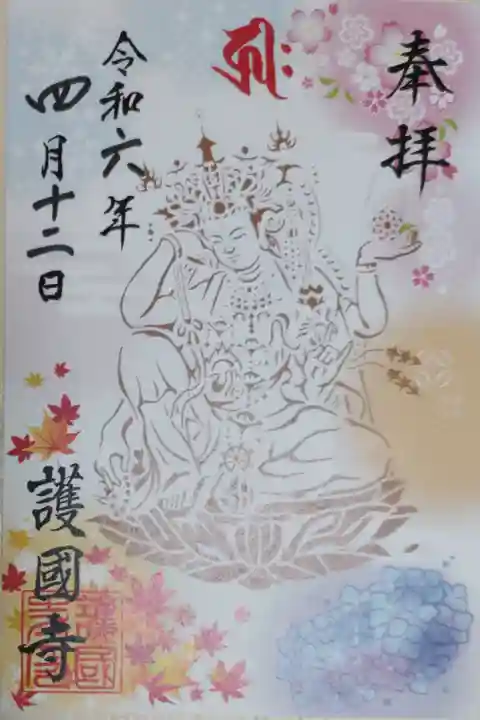 奉拝
令和六年
四月十二日
護國寺